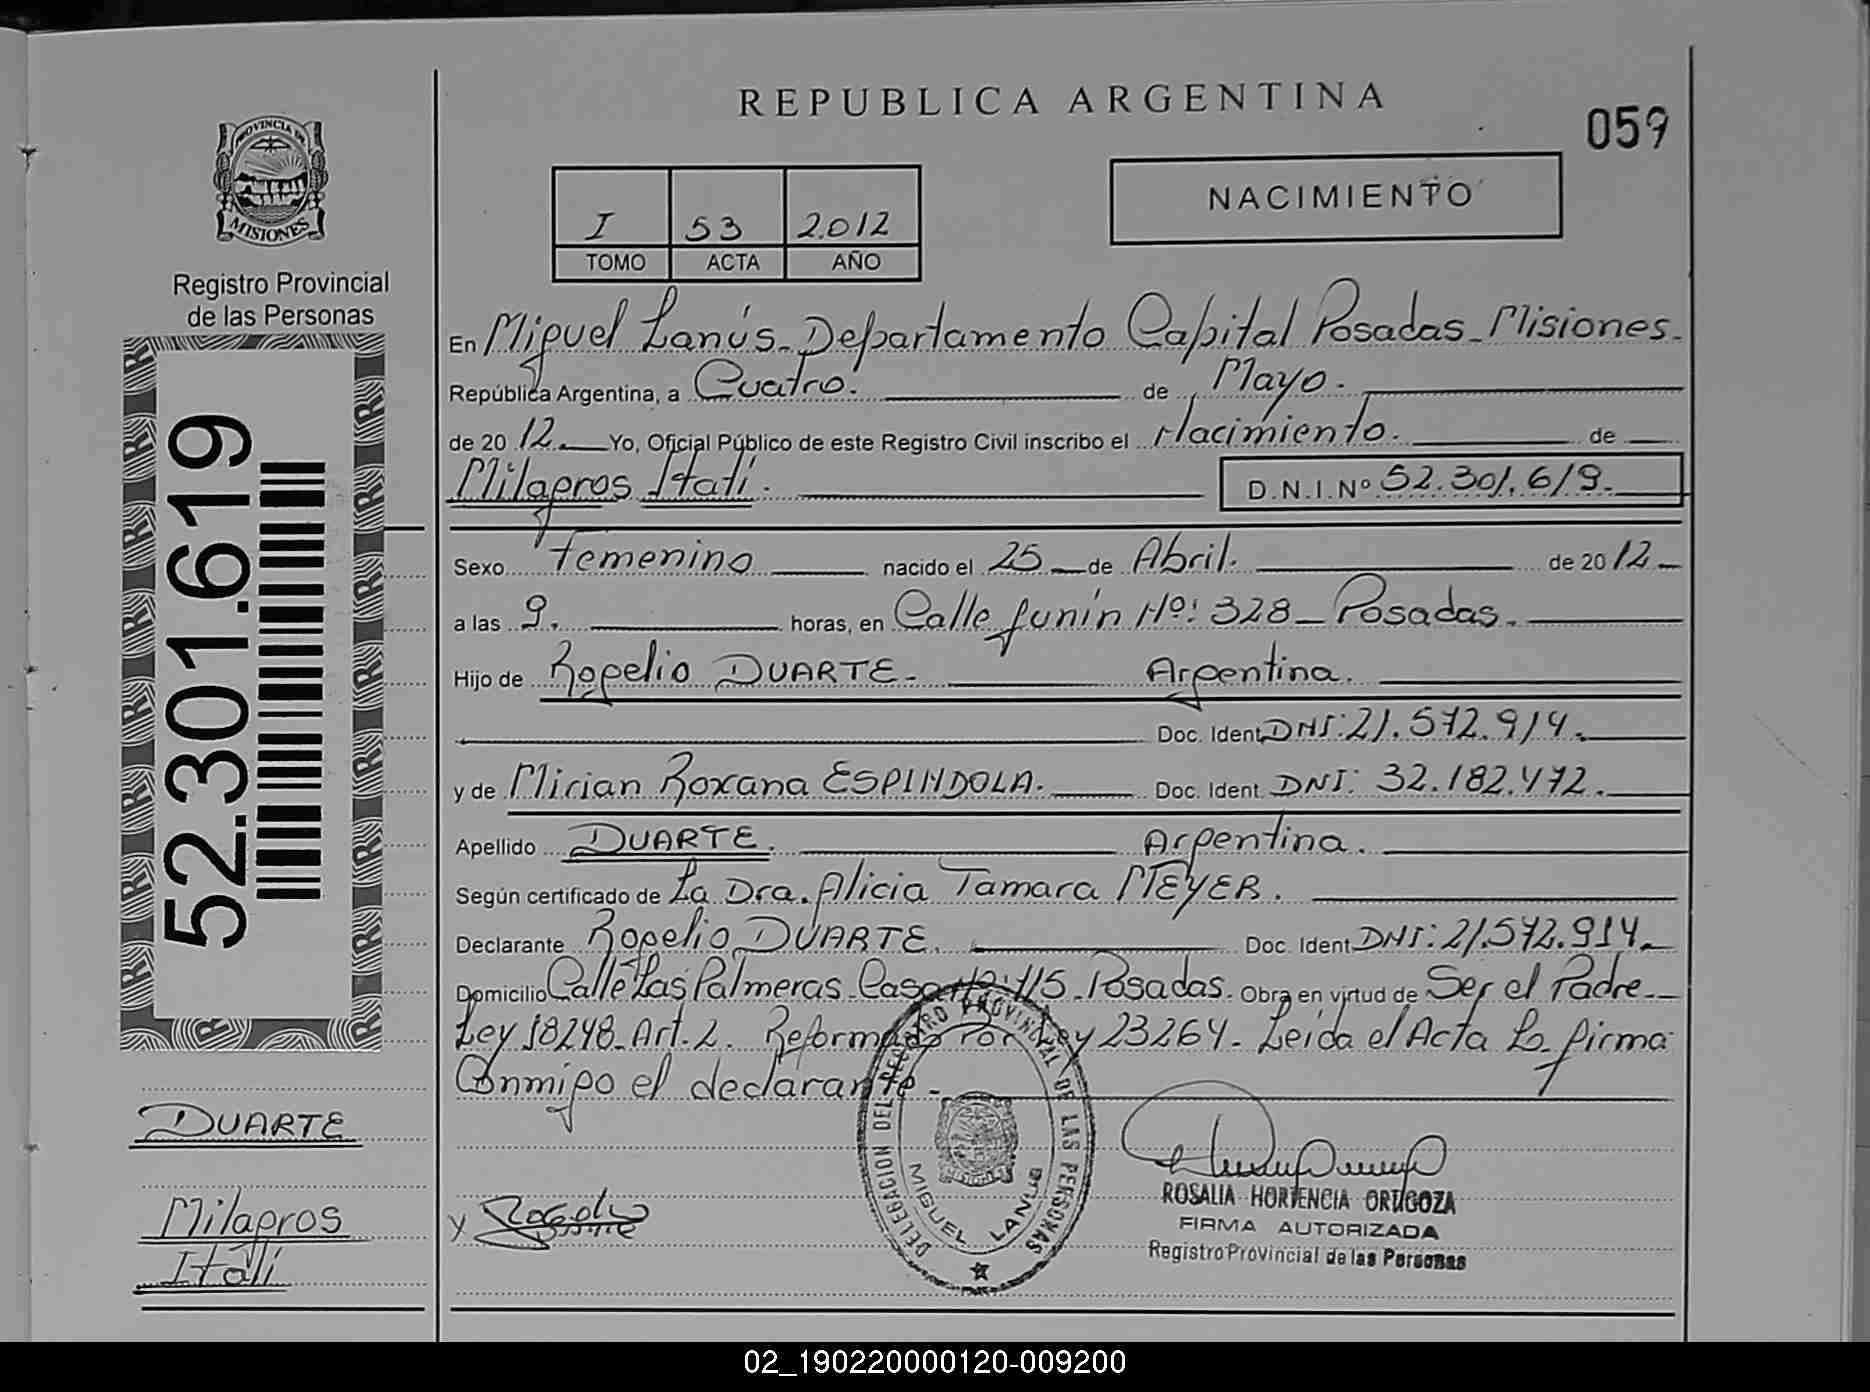 REPUBLICA ARGENTINA
059
PROVINCIA DE
MISIONES
Registro Provincial
de las Personas
I 53 2.012
TOMO ACTA AÑO
NACIMIENTO
52.301.619
En Miguel Lanús - Departamento Capital Posadas - Misiones -
República Argentina, a Cuatro. de Mayo.
de 20 12. Yo, Oficial Público de este Registro Civil inscribo el Nacimiento. de
Milagros Itatí. D.N.I.Nº 52.301.619.
Sexo Femenino nacido el 25 de Abril. de 20 12
a las 9. horas, en Calle Junín Nº: 328 - Posadas.
Hijo de Rogelio DUARTE - Argentina.
Doc. Ident. DNI: 21.572.914.
y de Mirian Roxana ESPINDOLA. Doc. Ident. DNI: 32.182.472.
Apellido DUARTE. Argentina.
Según certificado de La Dra. Alicia Tamara MEYER.
Declarante Rogelio DUARTE. Doc. Ident. DNI: 21.572.914.
Domicilio Calle Las Palmeras - Casa Nº: 115 - Posadas. Obra en virtud de Ser el Padre -
Ley 18248 - Art. 2. Reformado Por Ley 23264 - Leída el Acta La firma
Conmigo el declarante -
DUARTE
Milagros
Itatí
DELEGACION DEL REGISTRO PROVINCIAL DE LAS PERSONAS
MIGUEL LANUS
ROSALIA HORTENCIA ORTIGOZA
FIRMA AUTORIZADA
Registro Provincial de las Personas
02_190220000120-009200